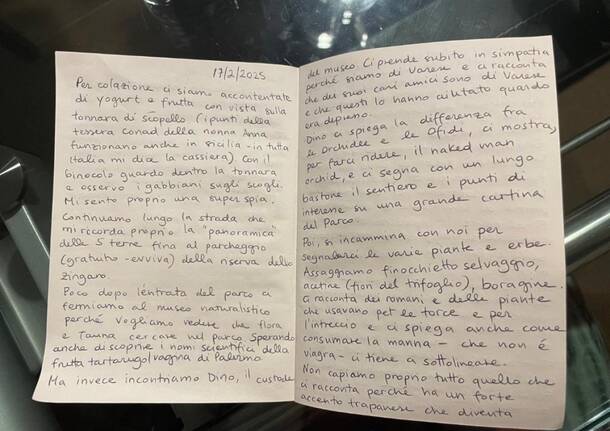 17/2/2025
Per colazione ci siamo accontentate
di yogurt e frutta con vista sulla
tonnara di scopello (i punti della
tessera conad della nonna Anna
funzionano anche in sicilia - in tutta
Italia mi dice la cassiera) con il
binocolo guardo dentro la tonnara
e osservo i gabbiani sugli scogli.
Mi sento proprio una super spia.
Continuamo lungo la strada che
mi ricorda proprio la "panoramica"
delle 5 terre fino al parcheggio
(gratuito - evviva) della riserva dello
zingaro.
Poco dopo l'entrata del parco ci
fermiamo al museo naturalistico
perché vogliamo vedere che flora
e fauna cercare nel parco. Sperando
anche di scoprire i nomi scientifici della
frutta tartarugolvagina di Palermo
Ma invece incontriamo Dino, il custode
del museo. Ci prende subito in simpatia
perché siamo di Varese e ci racconta
che dei suoi cari amici sono di Varese
e che questi lo hanno aiutato quando
era depresso.
Dino ci spiega la differenza fra
le Orchidee e le Ofidi, ci mostra,
per farci ridere, il naked man
orchid, e ci segna con un lungo
bastone il sentiero e i punti di
interesse su una grande cartina
del Parco.
Poi, si incammina con noi per
segnalarci le varie piante e erbe.
Assaggiamo finocchietto selvaggio,
acetine (fiori del trifoglio), boragine.
Ci racconta dei romani e delle piante
che usavano per le torce e per
l'intreccio e ci spiega anche come
consumare la manna - che non é
viagra - ci tiene a sottolineare.
Non capiamo proprio tutto quello che
ci racconta perché ha un forte
accento trapanese che diventa